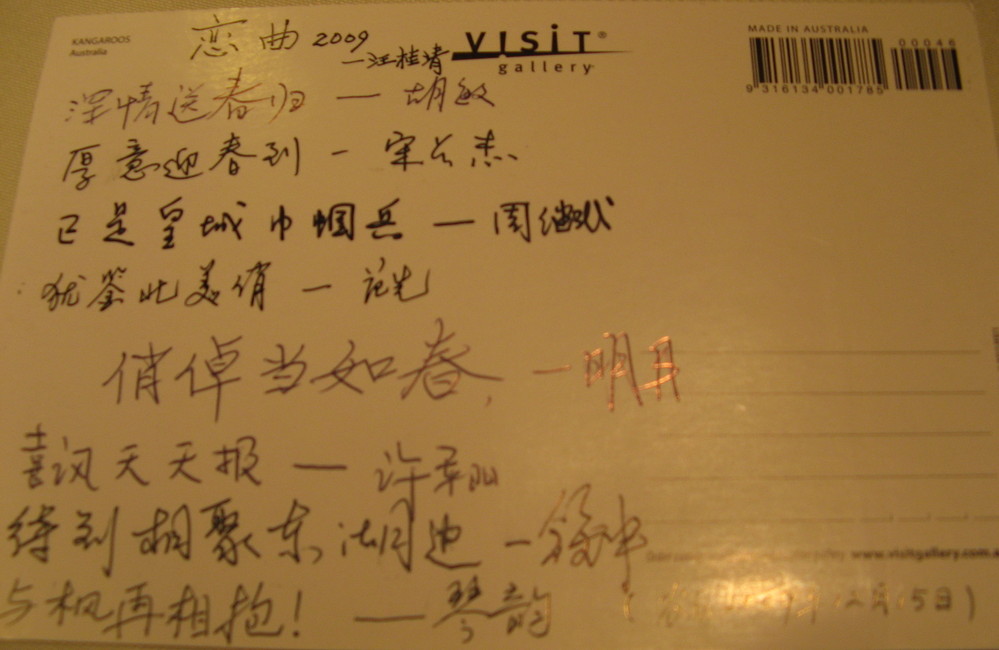 KANGAROOS
Australia
恋曲 2009
—汪桂清
VISIT®
gallery
MADE IN AUSTRALIA
00046
9 316134 001785
深情送春归 — 胡敏
厚意迎春到 — 宋公杰
已是皇城巾帼兵 — 周继武
犹鉴此美俏 —
俏倬当如春, — 明月
喜讯天天报 — 许
待到相聚东湖边 — 徐中
与枫再相抱! — 琴韵
www.visitgallery.com
月15日)